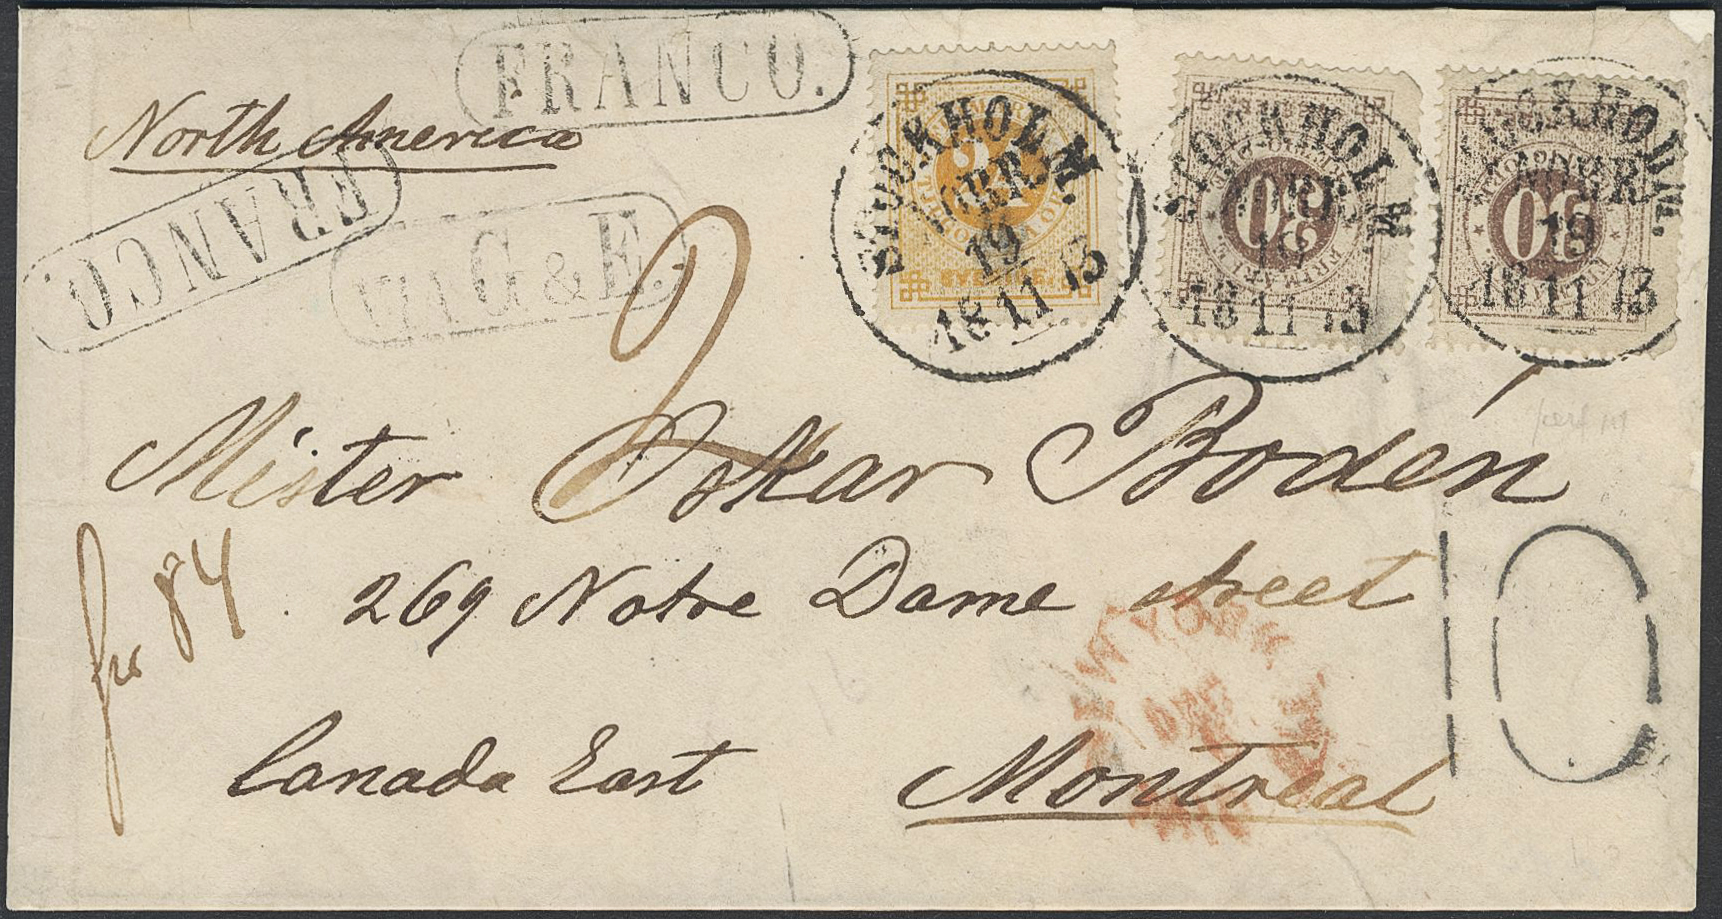 FRANCO.
North America
FRANCO.
VIA G & E.
2
STOCKHOLM
NORR.
19
18 11 73
24
SVERIGE.
STOCKHOLM
NORR.
19
18 11 73
30
STOCKHOLM.
NORR.
19
18 11 73
30
Mister Oskar Bodén
fr 84
269 Notre Dame street
10
NEW YORK
Canada East Montreal